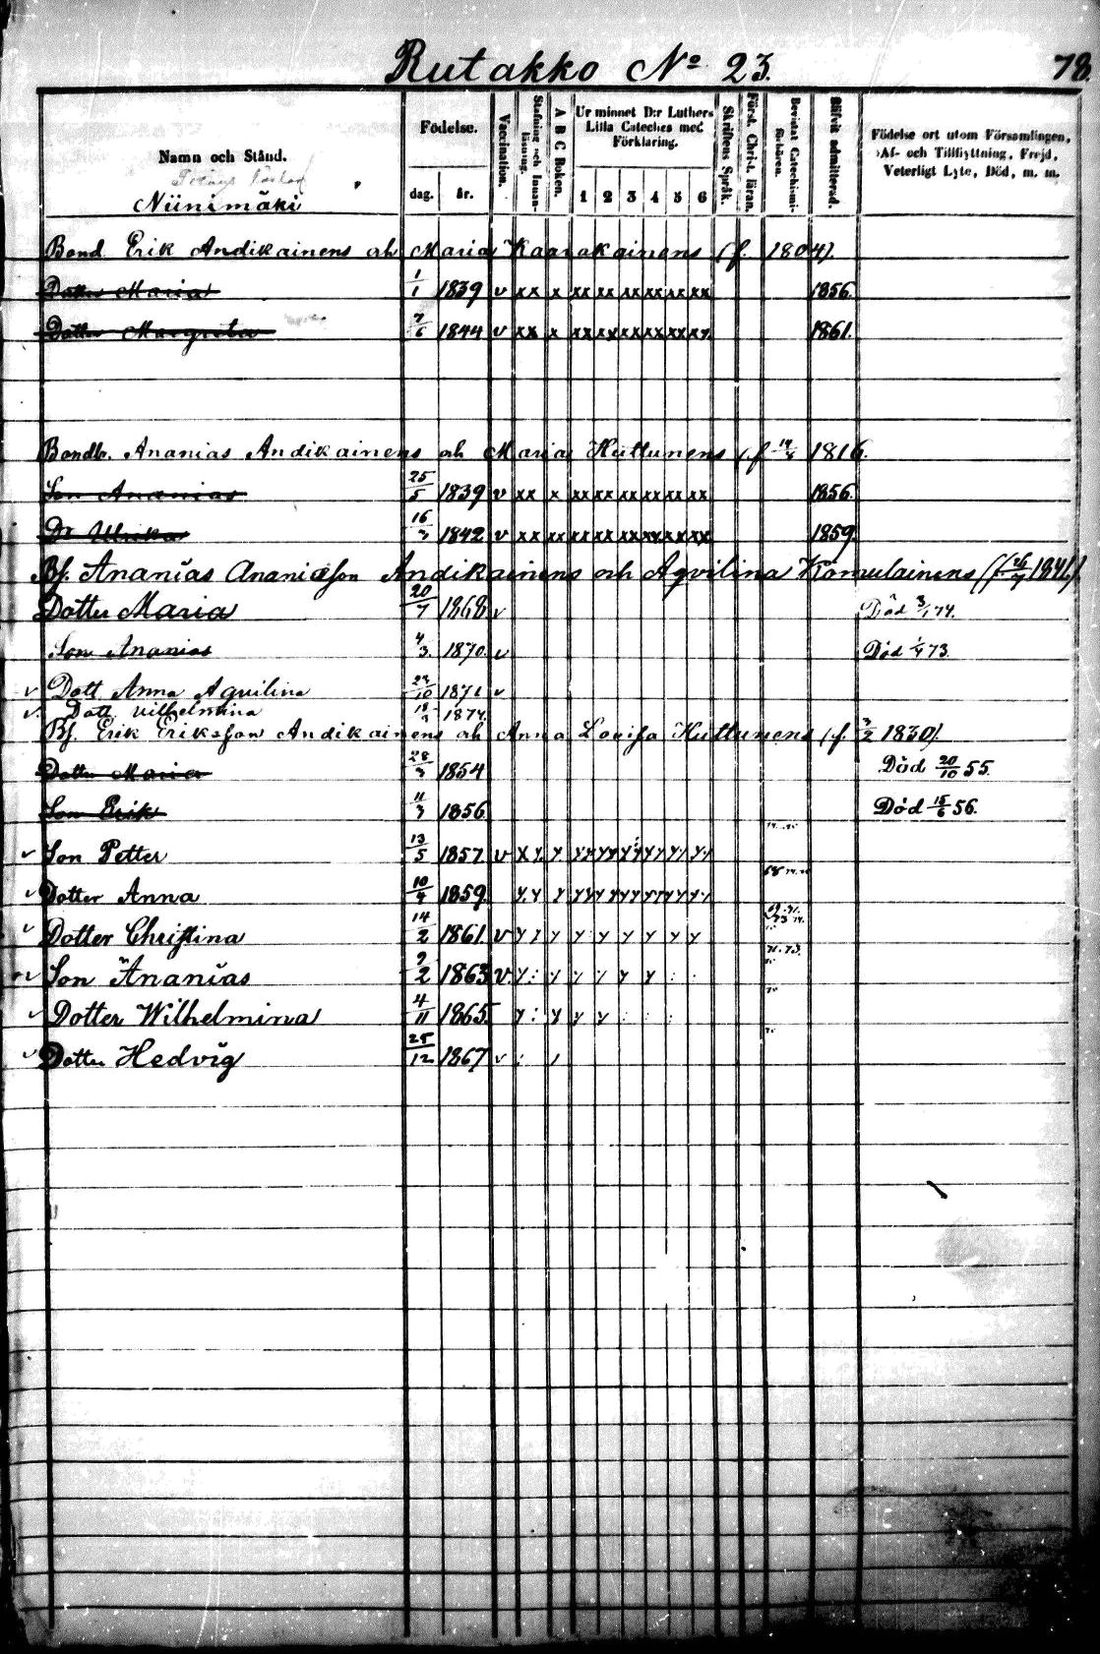 Rutakko No 23.
78.
Namn och Stånd.
Niinimäki
Födelse.
dag. år.
Vaccination.
Stafning och Innan-läsning.
A B C Boken.
Ur minnet D:r Luthers
Lilla Cateches med
Förklaring.
1 2 3 4 5 6
Skriftens Språk.
Först. Christ. läran.
Bevistat Catechismi-förhören.
Blifvit admitterad.
Födelse ort utom Församlingen,
Af- och Tillflyttning, Frejd,
Veterligt Lyte, Död, m. m.
Bond. Erik Andikainens och Maria Kaarakainens (f. 1804).
Dotter Maria 1/1 1839 v xx x xx xx xx xx xx xx 1856.
Dotter Margreta 7/6 1844 v xx x xx xx xx xx xx xx 1861.
Bondbr. Ananias Andikainens och Maria Huttunens (f. 1816.
Son Ananias 25/5 1839 v xx x xx xx xx xx xx xx 1856.
Dr Ulrika 16/3 1842 v xx xx xx xx xx xx xx xx 1859.
Bf. Ananias Ananiasson Andikainens och Aqvilina Komulainens 1841).
Dotter Maria 20/7 1868 v Död 74.
Son Ananias 4/3. 1870. v Död 73.
v Dott. Anna Aqvilina 1871 v
v. Dott. Vilhelmina 1874.
Bf. Erik Eriksson Andikainens och Anna Lovisa Huttunens (f. 3/2 1830).
Dotter Maria 28/3 1854 Död 20/10 55.
Son Erik 11/3 1856 Död 15/6 56.
v Son Petter 13/5 1857 v
v Dotter Anna 10/4 1859.
v Dotter Christina 14/2 1861. v
v Son Ananias 9/2 1863 v.
v Dotter Wilhelmina 4/11 1865.
v Dotter Hedvig 25/12 1867 v